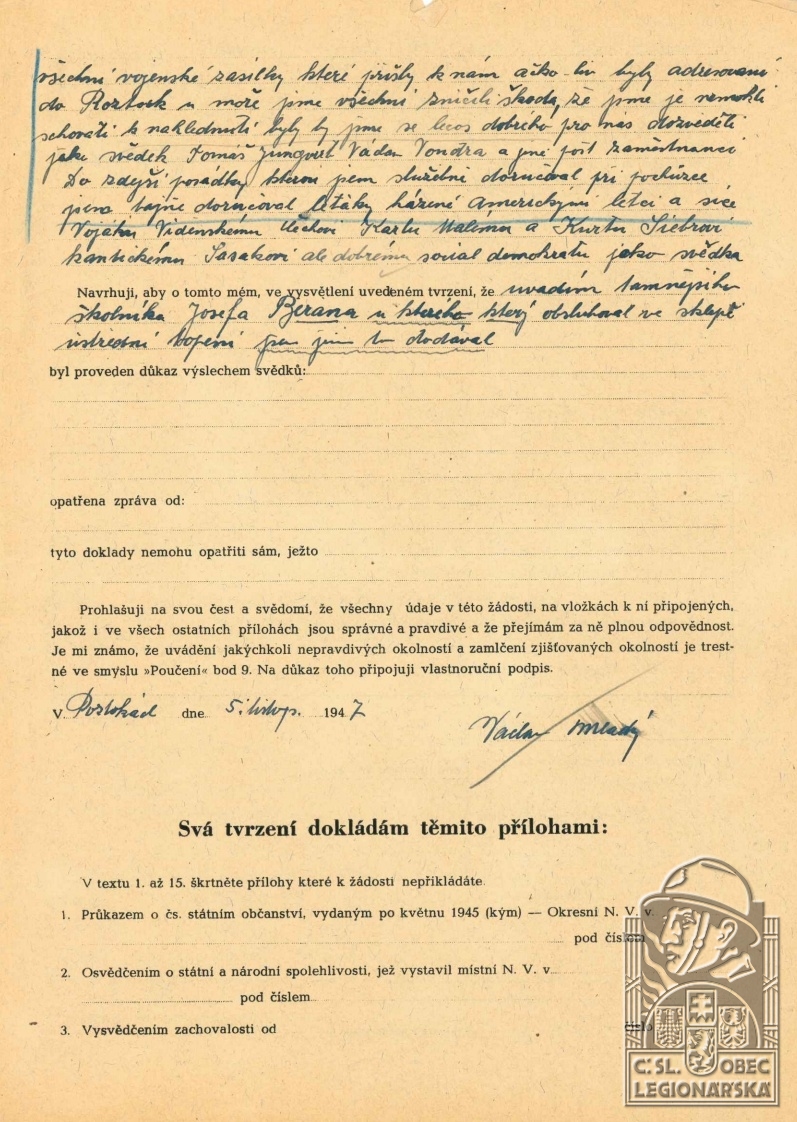 všechni vojenské zasilky které přišly k nám ačko-liv byly adresovaní
do Roztock u moře jsme všechni zničili škoda, že jsme je nemohli
schovati k nahlednutí byly by jsme se lecos dobreho pro nás dozveděti
jako svědek Tomáš Jungvirt Václav Vondra a jiné pošt zaměstnanci
Do zdejší posádky kterou jsem služebně doručoval při pochůzce
jsem tajně doručoval letáky házené americkými letci a sice
Vojáku Videnskému čechovi Karlu Malému a Kurtu Siebrovi
Sasakovi ale dobrému social demokratu jako svědka
Navrhuji, aby o tomto mém, ve vysvětlení uvedeném tvrzení, že uvadím tamnějšiho
školníka Josefa Berana u ktereho který obsluhoval ve sklepě
ústrední topení jsem jim to dodával
byl proveden důkaz výslechem svědků:
opatřena zpráva od:
tyto doklady nemohu opatřiti sám, ježto
Prohlašuji na svou čest a svědomí, že všechny údaje v této žádosti, na vložkách k ní připojených,
jakož i ve všech ostatních přílohách jsou správné a pravdivé a že přejímám za ně plnou odpovědnost.
Je mi známo, že uvádění jakýchkoli nepravdivých okolností a zamlčení zjišťovaných okolností je trest-
né ve smyslu »Poučení« bod 9. Na důkaz toho připojuji vlastnoruční podpis.
V Roztokách dne 5. listop. 1947
Václav Mladý
Svá tvrzení dokládám těmito přílohami:
V textu 1. až 15. škrtněte přílohy které k žádosti nepřikládáte.
1. Průkazem o čs. státním občanství, vydaným po květnu 1945 (kým) — Okresní N. V. v.
pod číslem
2. Osvědčením o státní a národní spolehlivosti, jež vystavil místní N. V. v
pod číslem
3. Vysvědčením zachovalosti od číslo
Č.SL. OBEC
LEGIONÁŘSKÁ